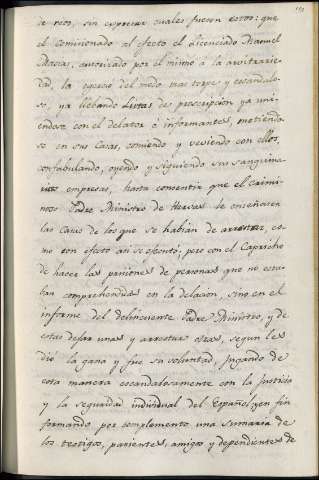 de reos, sin expresar cuales fueron estos: que
el Comisionado al efecto el Licenciado Manuel
Macias, autorizado por el mismo á la arbitrarie-
dad, la egerció del modo mas torpe y escandalo-
so, ya llebando Listas de proscripcion ya uni-
endose con el delator é informantes, metiendo-
se en sus Casas, comiendo y veviendo con ellos,
confabulando, oyendo y siguiendo sus sanguina-
rias empresas, hasta consentir que el Crimi-
noso Padre Ministro de Hervas le enseñare
las Casas de los que se habian de arrestar, co-
mo con efecto asi se efectuó; pero con el Capricho
de hacer las prisiones de personas que no esta-
ban comprehendidas en la delacion, sino en el
informe del delincuente Padre Ministro, y de
estas dejar unas y arrestar otras, segun les
dió la gana y fue su voluntad, jugando de
esta manera escandalosamente con la Justicia
y la seguridad individual del Español; y en fin
formando por complemento una sumaria de
los testigos, parientes, amigos y dependientes de